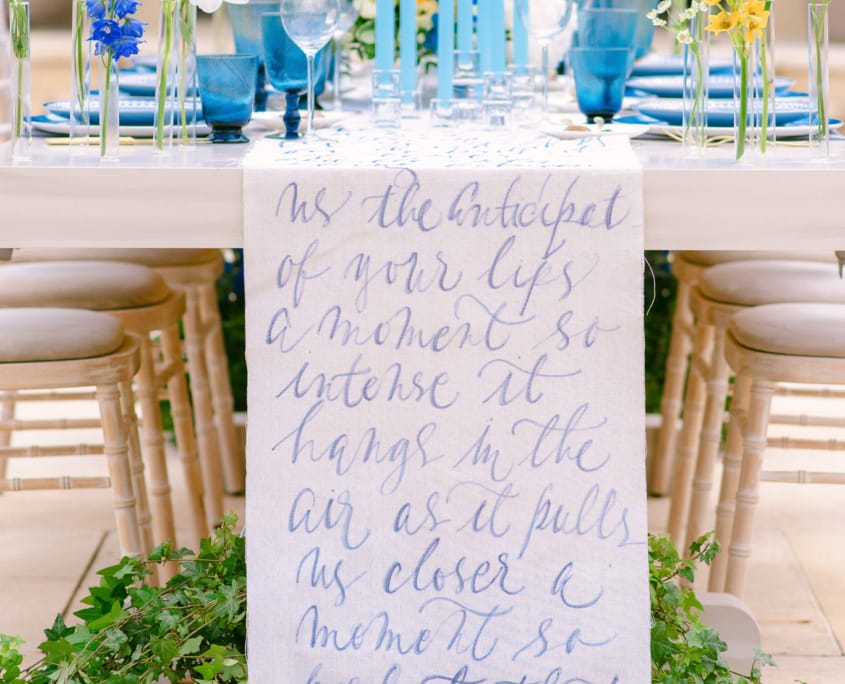 us the anticipat
of your lips
a moment so
intense it
hangs in the
air as it pulls
us closer a
moment so